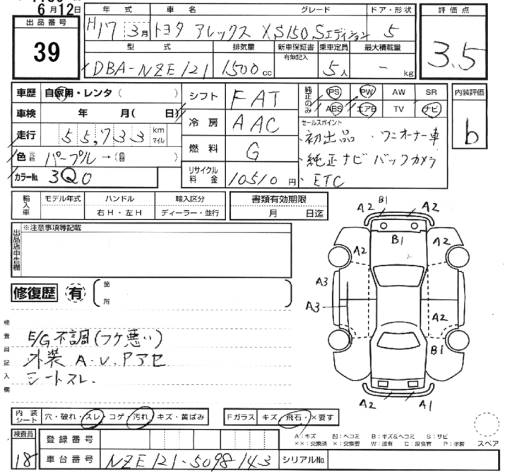 6月12日
出品番号
39
年式 車名 グレード ドア・形状
H17 3月 トヨタ アレックス XS150 Sエディション 5
型式 排気量 新車保証書 乗車定員 最大積載量
有無記入
DBA-NZE121 1500cc 5人 - kg
評価点
3.5
車歴 自家用・レンタ( )
車検 年 月( )
走行 55,733 km マイル
色 パープル→(
カラーNo. 3Q0
シフト FAT
冷房 AAC
燃料 G
リサイクル料金 10510円
純正のみ
PS PW AW SR
ABS エアB TV ナビ
セールスポイント
初出品 ワンオーナー車
純正ナビ バックカメラ
ETC
内装評価
b
輸入車
モデル年式 ハンドル 輸入区分
右H・左H ディーラー・並行
書類有効期限
月 日迄
出品店申告欄
※注意事項等記載
修復歴 有
箇所
検査員記入欄
E/G不調(フケ悪い)
外装 A.U.Pアセ
シートスレ
A2 B1 A2
B1
A2 A2
A3
A3
A2
B1 A1
A2 A2
内装シート
穴・破れ・スレ・コゲ・汚れ・キズ・黄ばみ
Fガラス キズ・飛石・×要す
検査員
18
登録番号
車台番号 NZE121-5098143
シリアルNo.
スペア